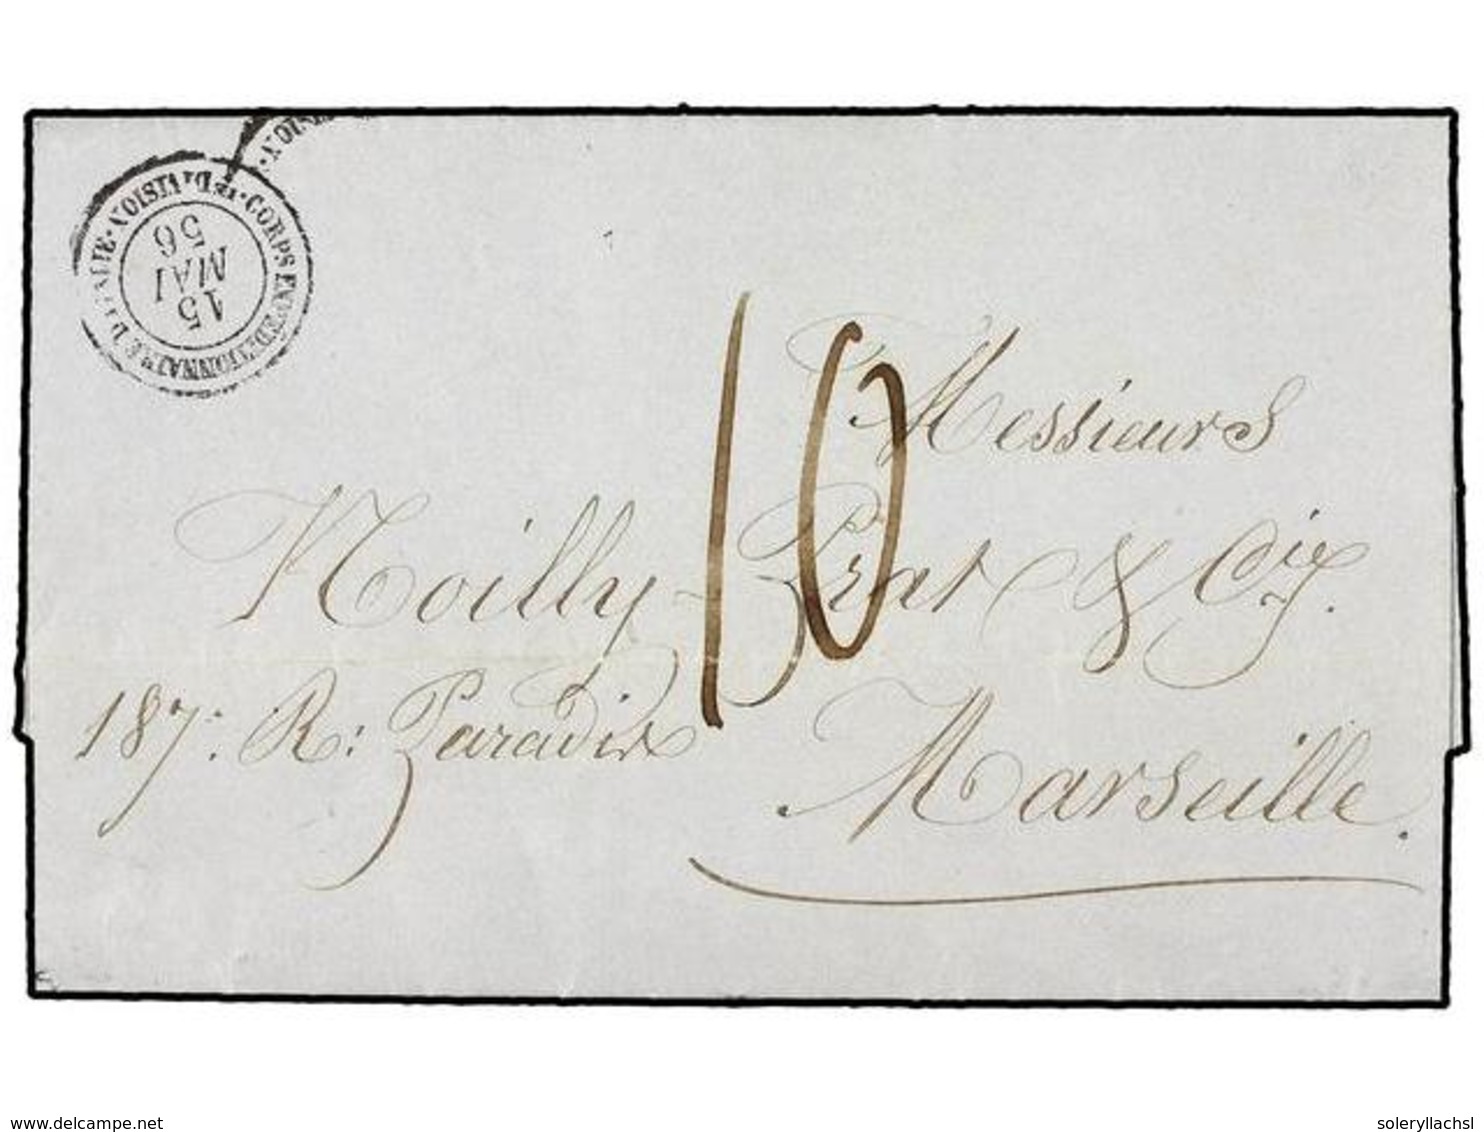 CORPS EXPEDITIONNAIRE D'ITALIE · 1RE DIVISION ·
15
MAI
56
10
Messieurs
Noilly-Prat & Cie
187. R: Paradis
Marseille.
delcampe.net
soleryllachsl